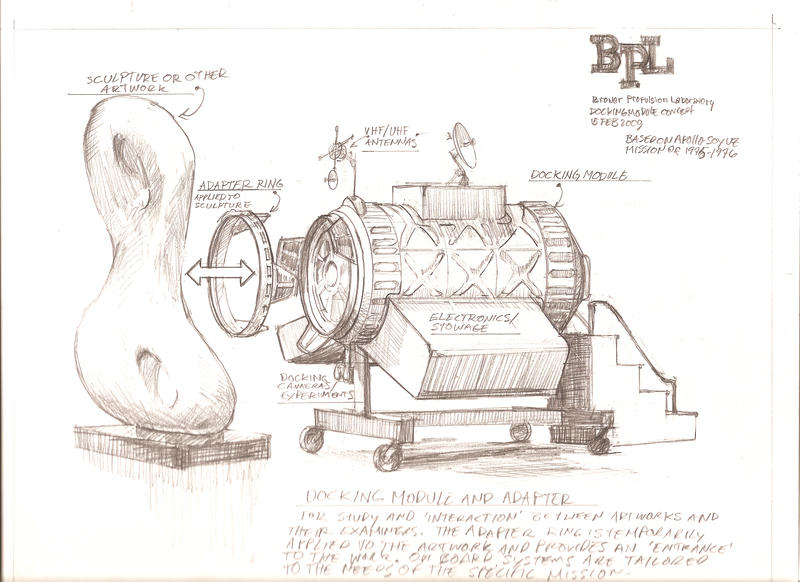 SCULPTURE OR OTHER
ARTWORK
BPL
Brower Propulsion Laboratory
DOCKING MODULE CONCEPT
18 FEB 2009
BASED ON APOLLO-SOYUZ
MISSION OF 1975-1976
VHF/UHF
ANTENNAS
ADAPTER RING
APPLIED TO
SCULPTURE
DOCKING MODULE
ELECTRONICS/
STOWAGE
DOCKING
CAMERAS
EXPERIMENTS
DOCKING MODULE AND ADAPTER
FOR STUDY AND 'INTERACTION' BETWEEN ARTWORKS AND
THEIR EXAMINERS. THE ADAPTER RING IS TEMPORARILY
APPLIED TO THE ARTWORK AND PROVIDES AN 'ENTRANCE'
TO THE WORK. ON BOARD SYSTEMS ARE TAILORED
TO THE NEEDS OF THE SPECIFIC MISSION.